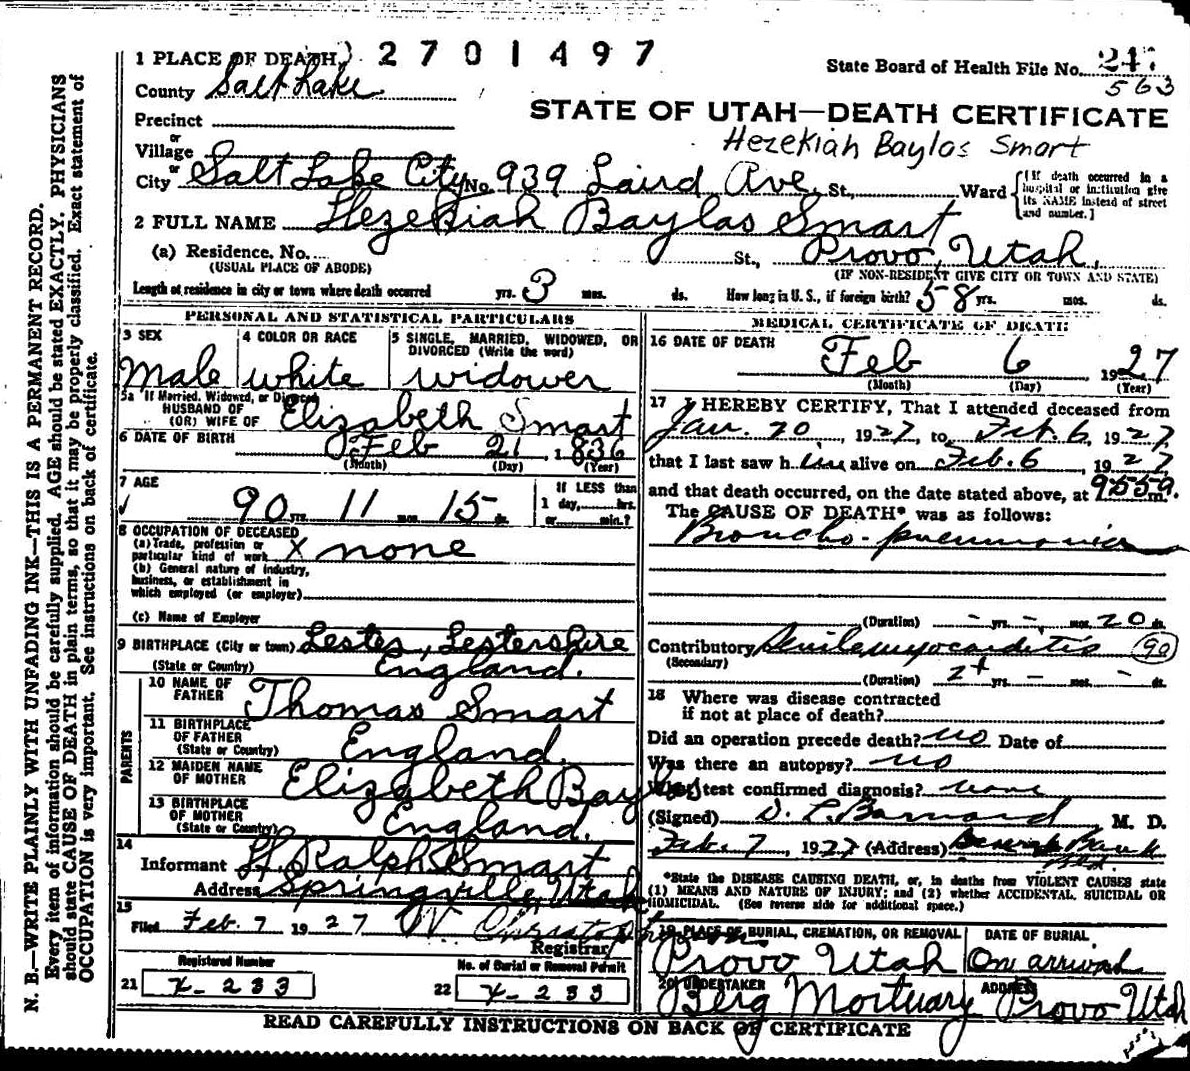 1 PLACE OF DEATH 2701497
State Board of Health File No. 247
563
County Salt Lake
STATE OF UTAH—DEATH CERTIFICATE
Precinct
Hezekiah Baylas Smart
or
Village
or
City Salt Lake City No. 939 Laird Ave. St., Ward
[If death occurred in a
hospital or institution give
its NAME instead of street
and number.]
2 FULL NAME Hezekiah Baylas Smart
(a) Residence. No. St., Provo, Utah.
(USUAL PLACE OF ABODE) (IF NON-RESIDENT GIVE CITY OR TOWN AND STATE)
Length of residence in city or town where death occurred yrs. 3 mos. ds. How long in U. S., if foreign birth? 58 yrs. mos. ds.
PERSONAL AND STATISTICAL PARTICULARS
3 SEX 4 COLOR OR RACE 5 SINGLE, MARRIED, WIDOWED, OR
DIVORCED (Write the word)
Male white widower
5a If Married, Widowed, or Divorced
HUSBAND OF
(OR) WIFE OF Elizabeth Smart
6 DATE OF BIRTH Feb 21 1836
(Month) (Day) (Year)
7 AGE If LESS than
90 yrs. 11 mos. 15 ds. 1 day, hrs.
or min.?
8 OCCUPATION OF DECEASED
(a) Trade, profession or
particular kind of work X none
(b) General nature of industry,
business, or establishment in
which employed (or employer)
(c) Name of Employer
9 BIRTHPLACE (City or town) Lester, Lestershire
(State or Country) England.
PARENTS
10 NAME OF
FATHER Thomas Smart
11 BIRTHPLACE
OF FATHER
(State or Country) England.
12 MAIDEN NAME
OF MOTHER Elizabeth Baylas
13 BIRTHPLACE
OF MOTHER
(State or Country) England.
14
Informant H. Ralph Smart
Address Springville, Utah
15
Filed Feb. 7 1927 W.
Registrar
Registered Number No. of Burial or Removal Permit
21 X-233 22 X-233
MEDICAL CERTIFICATE OF DEATH
16 DATE OF DEATH Feb 6 1927
(Month) (Day) (Year)
17 I HEREBY CERTIFY, That I attended deceased from
Jan. 20, 1927, to Feb. 6, 1927,
that I last saw him alive on Feb. 6, 1927
and that death occurred, on the date stated above, at 955 a m.
The CAUSE OF DEATH* was as follows:
Broncho-pneumonia
(Duration) - yrs. - mos. 20 ds.
Contributory Senile myocarditis 90
(Secondary)
(Duration) 2+ yrs. - mos. - ds.
18 Where was disease contracted
if not at place of death?
Did an operation precede death? no Date of
Was there an autopsy? no
What test confirmed diagnosis? none
(Signed) D. L. Barnard M. D.
Feb. 7, 1927 (Address) Deseret Bank
Bld.
*State the DISEASE CAUSING DEATH, or, in deaths from VIOLENT CAUSES state
(1) MEANS AND NATURE OF INJURY; and (2) whether ACCIDENTAL, SUICIDAL OR
HOMICIDAL. (See reverse side for additional space.)
19 PLACE OF BURIAL, CREMATION, OR REMOVAL DATE OF BURIAL
Provo Utah On arrival
20 UNDERTAKER ADDRESS
Berg Mortuary Provo Utah
READ CAREFULLY INSTRUCTIONS ON BACK OF CERTIFICATE
N. B.—WRITE PLAINLY WITH UNFADING INK—THIS IS A PERMANENT RECORD.
Every item of information should be carefully supplied. AGE should be stated EXACTLY. PHYSICIANS
should state CAUSE OF DEATH in plain terms, so that it may be properly classified. Exact statement of
OCCUPATION is very important. See instructions on back of certificate.